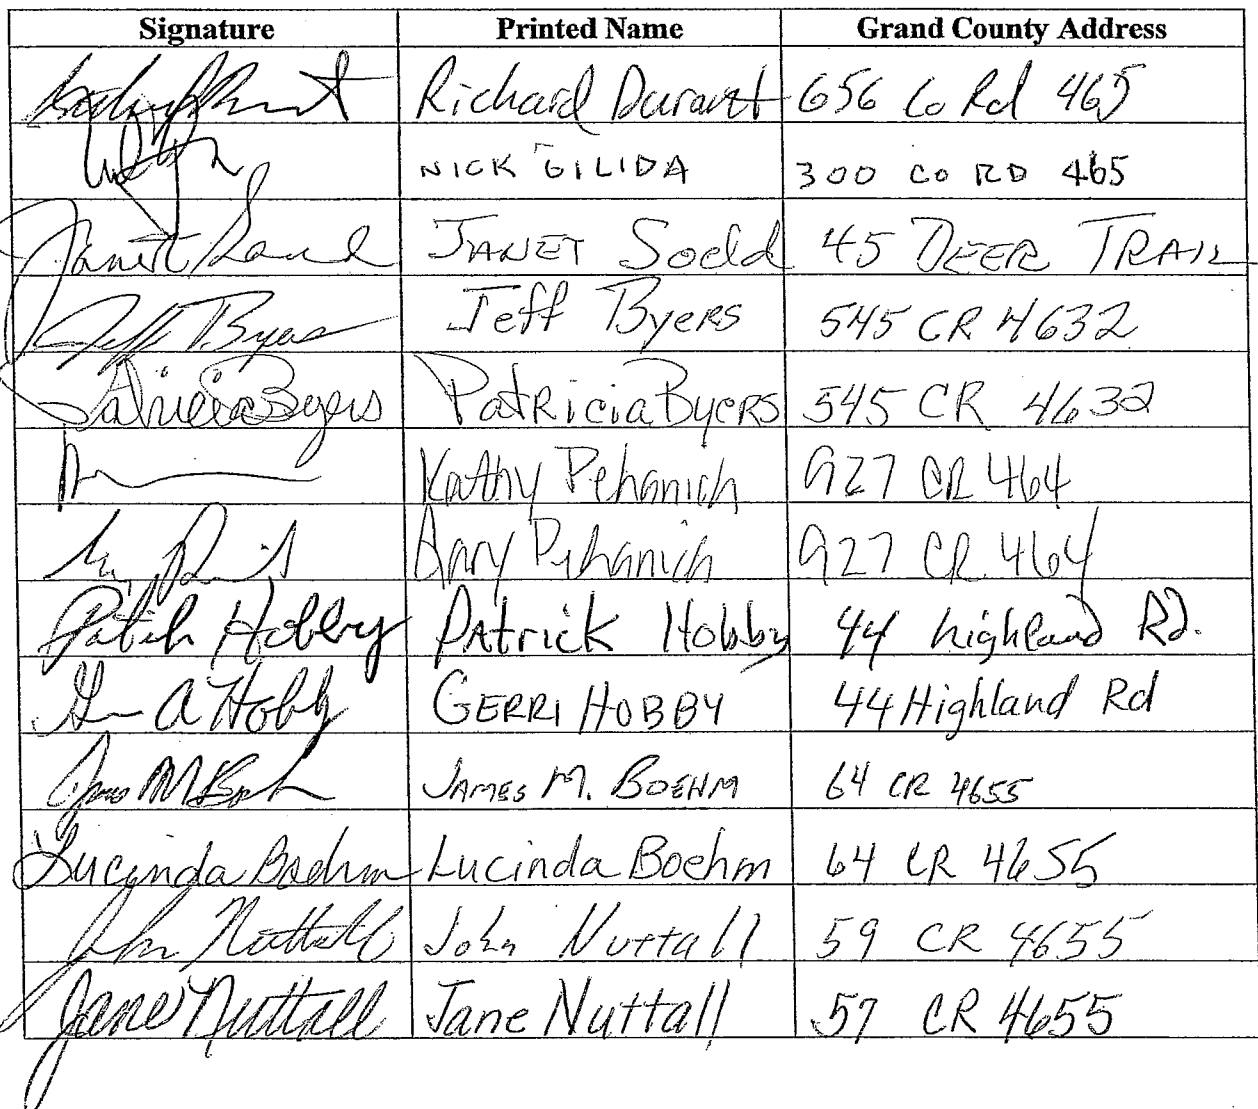 Signature Printed Name Grand County Address
Richard Durant 656 Co Rd 465
NICK GILIDA 300 CO RD 465
Janet JANET Soeld 45 DEER TRAIL
Jeff Byers Jeff Byers 545 CR 4632
Patricia Byers Patricia Byers 545 CR 4632
Kathy Pehanich 927 CR 464
Pehanich 927 CR 464
Patrick Hobby Patrick Hobby 44 highland Rd.
A Hobby GERRI HOBBY 44 Highland Rd
James M Boehm JAMES M. BOEHM 64 CR 4655
Lucinda Boehm Lucinda Boehm 64 CR 4655
John Nuttall John Nuttall 59 CR 4655
Jane Nuttall Jane Nuttall 57 CR 4655